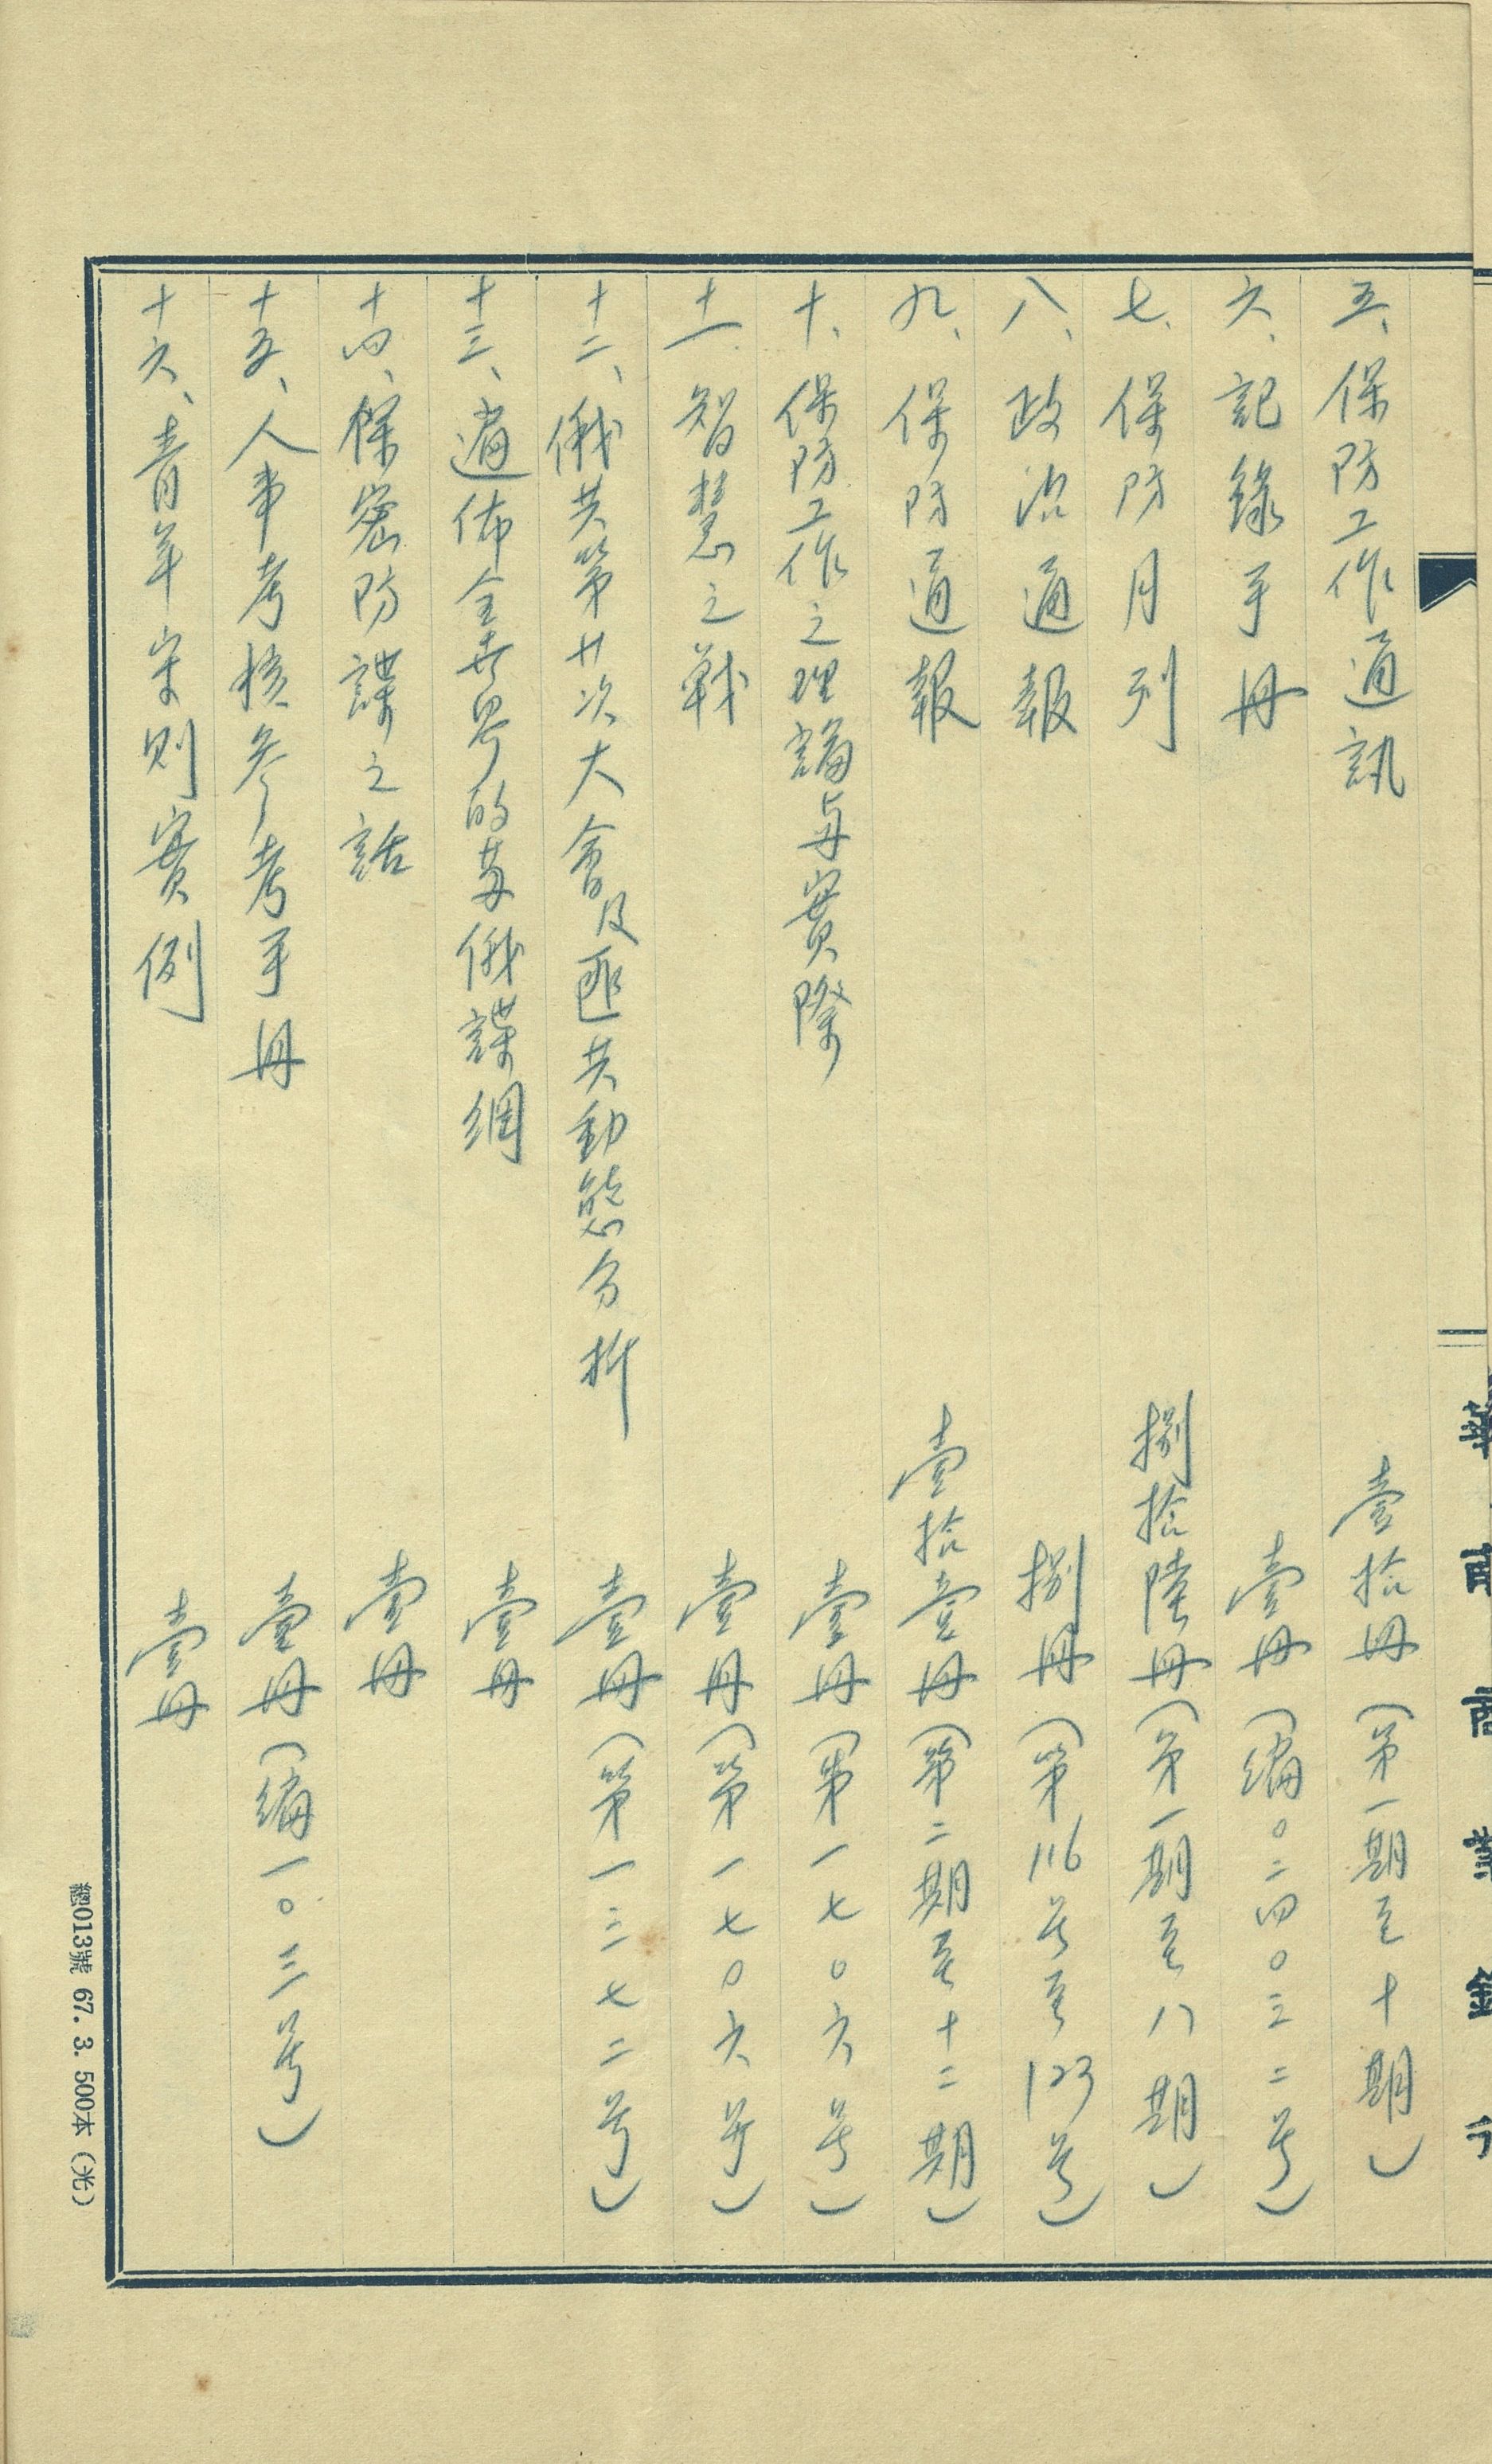 五、保防工作通訊 壹拾冊（第一期至十期）
六、記錄手冊 壹冊（編0二四0三二号）
七、保防月刊 捌拾陸冊（第一期至八期）
八、政治通報 捌冊（第116号至123号）
九、保防通報 壹拾壹冊（第二期至十二期）
十、保防工作之理論与實際 壹冊（第一七0六号）
十一、智慧之戰 壹冊（第一七0六号）
十二、俄共第廿次大會及匪共動態分析 壹冊（第一三七二号）
十三、遍佈全世界的蘇俄諜網 壹冊
十四、保密防諜之話 壹冊
十五、人事考核參考手冊 壹冊（編一0三号）
十六、青年守則實例 壹冊
總013號 67. 3. 500本（光）